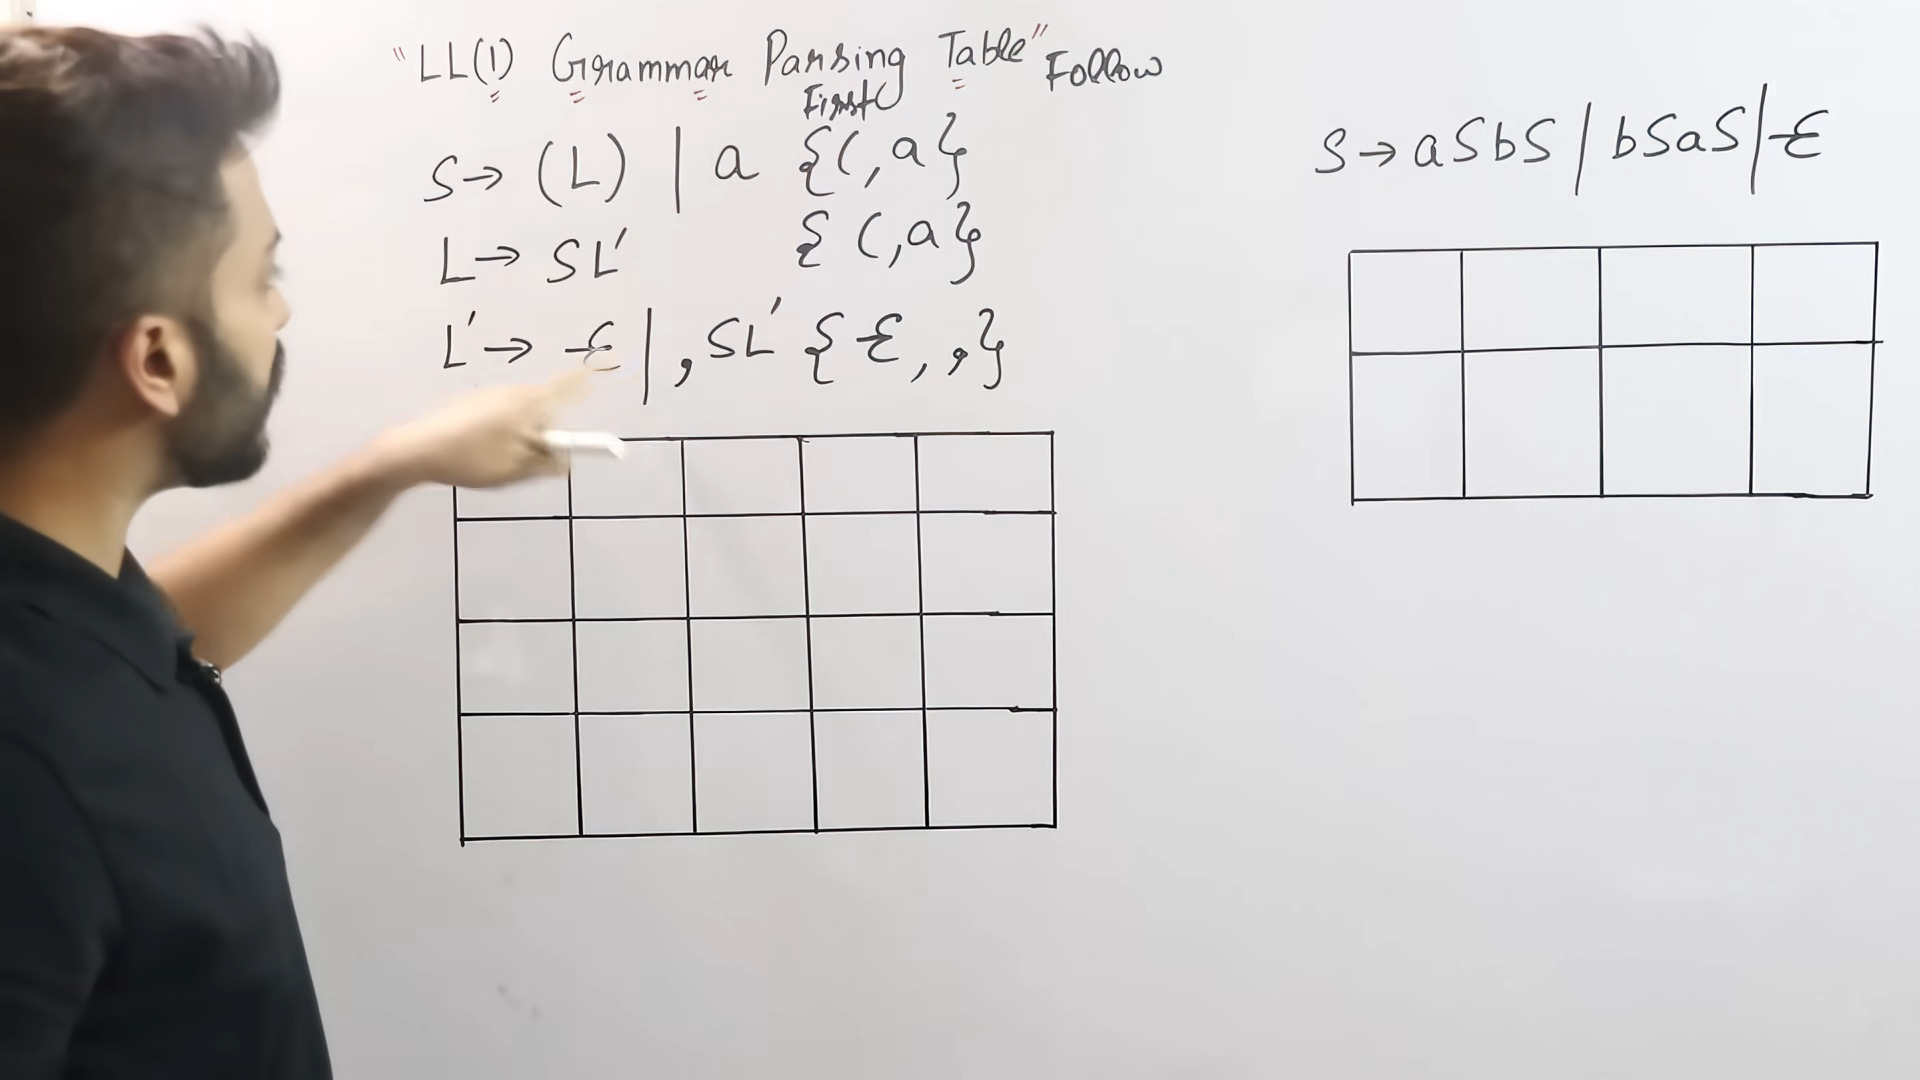 "LL(1) Grammar Parsing Table"
First Follow
S→ (L) | a {(,a}
L→ SL' {(,a}
L'→ Ɛ | ,SL' {Ɛ, ,}
S→ aSbS | bSaS | Ɛ